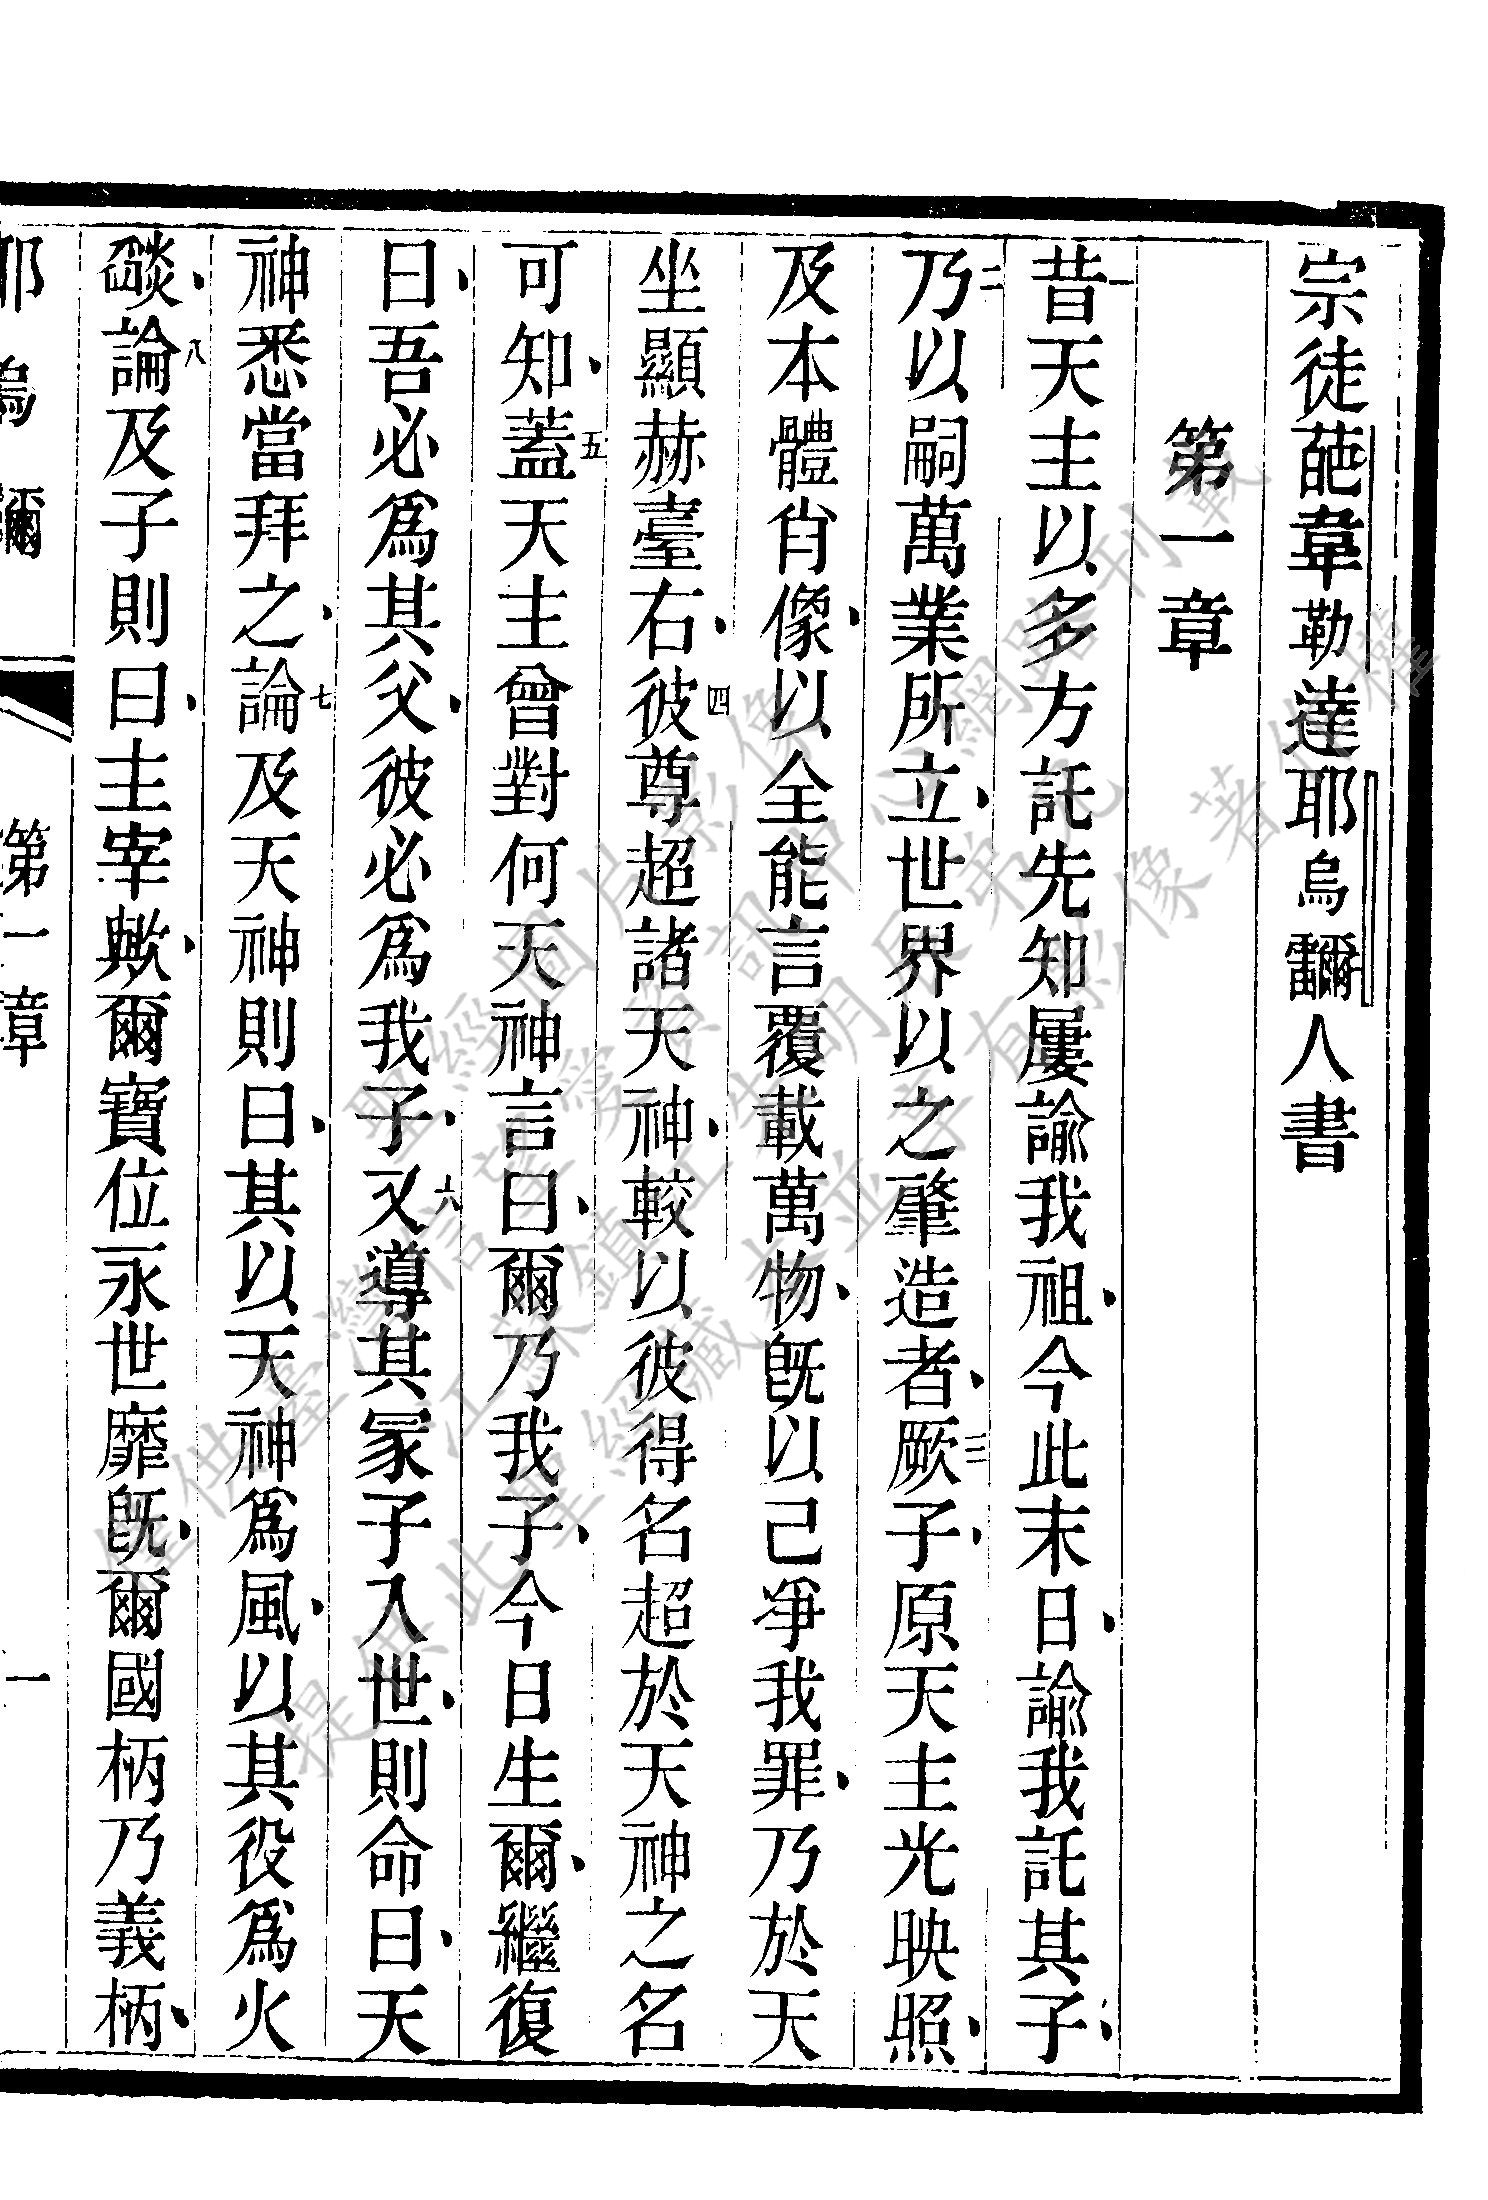 宗徒葩韋勒達耶烏𮦷人書
第一章
一昔天主以多方託先知屢諭我祖、今此末日、諭我託其子、
二乃以嗣萬業所立、世界以之肇造者、三厥子、原天主光映照、
及本體肖像、以全能言覆載萬物、旣以己爭我罪、乃於天
坐顯赫臺右、四彼尊超諸天神、較以彼得名超於天神之名
可知、五蓋天主曾對何天神言曰、爾乃我子、今日生爾、繼復
曰、吾必爲其父、彼必爲我子、六又導其冢子入世、則命曰、天
神悉當拜之、七論及天神則曰、其以天神爲風、以其役爲火
燄、八論及子則曰、主宰歟、爾寶位永世靡旣、爾國柄乃義柄、
第一章
一